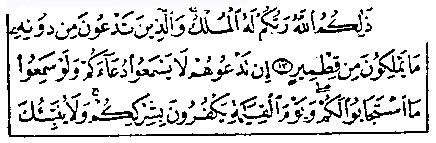 ذَٰلِكُمُ اللَّهُ رَبُّكُمْ لَهُ الْمُلْكُ ۚ وَالَّذِينَ تَدْعُونَ مِن دُونِهِ
مَا يَمْلِكُونَ مِن قِطْمِيرٍ ﴿١٣﴾ إِن تَدْعُوهُمْ لَا يَسْمَعُوا دُعَاءَكُمْ وَلَوْ سَمِعُوا
مَا اسْتَجَابُوا لَكُمْ ۖ وَيَوْمَ الْقِيَامَةِ يَكْفُرُونَ بِشِرْكِكُمْ ۚ وَلَا يُنَبِّئُكَ